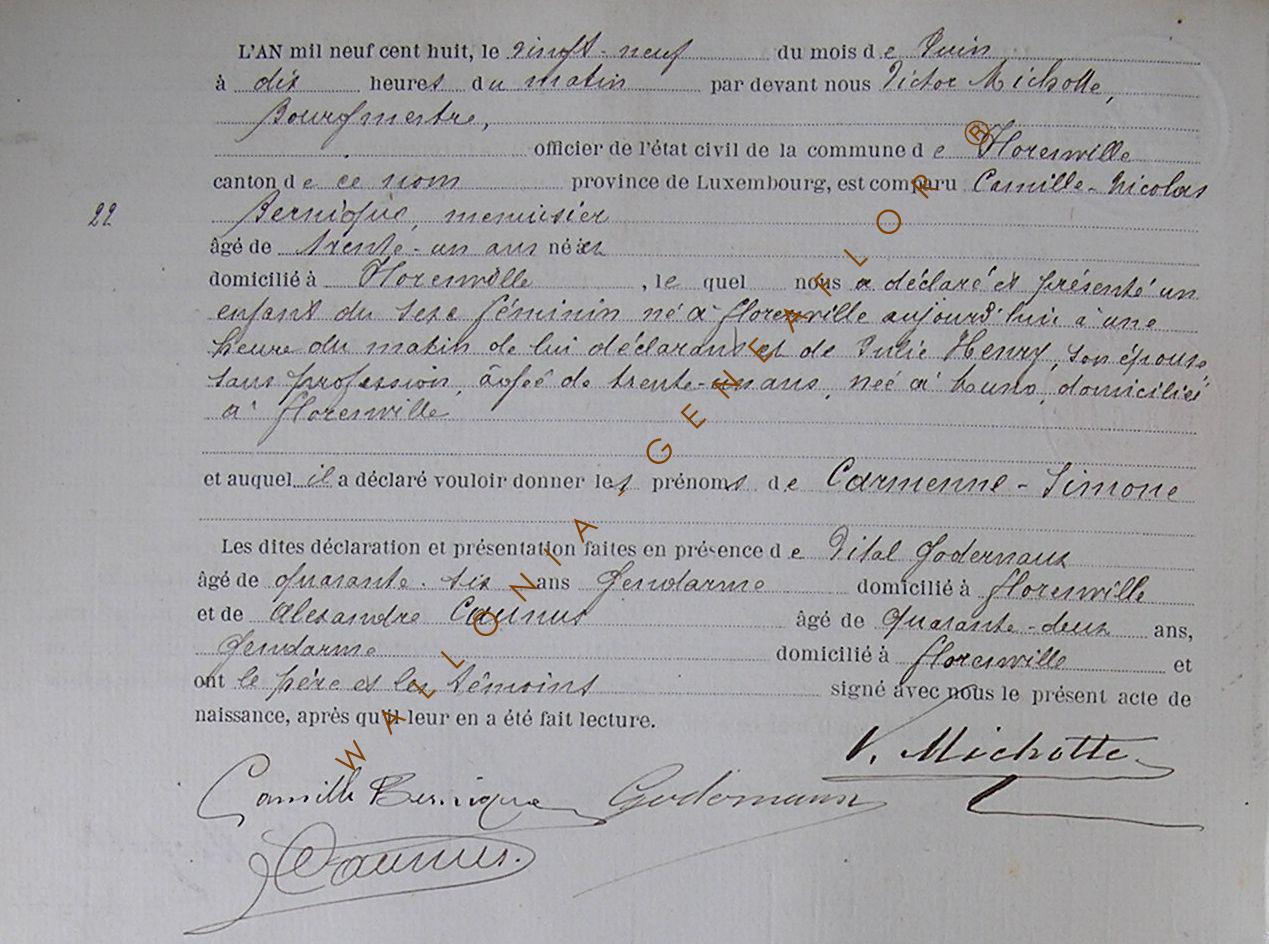 L'AN mil neuf cent huit, le vingt-neuf du mois de Juin
à dix heures du matin par devant nous Victor Michotte,
Bourgmestre,
officier de l'état civil de la commune de Florenville
canton de ce nom province de Luxembourg, est comparu Camille-Nicolas
22
Bernique, menuisier
âgé de trente-un ans né
domicilié à Florenville, lequel nous a déclaré et présenté un
enfant du sexe féminin né à Florenville aujourd'hui à une
heure du matin de lui déclarant et de Julie Henry, son épouse,
sans profession, âgée de trente-un ans, née à domiciliée
à Florenville
et auquel il a déclaré vouloir donner les prénoms de Carmenne-Simone
Les dites déclaration et présentation faites en présence de Vital Godernaux
âgé de quarante-six ans Gendarme domicilié à Florenville
et de Alexandre Caunus âgé de quarante-deux ans,
Gendarme domicilié à Florenville et
ont le père et les témoins signé avec nous le présent acte de
naissance, après qu'il leur en a été fait lecture.
V. Michotte
Camille Bernique
Caunus.
WALLONIA, GENEAFLOR ®